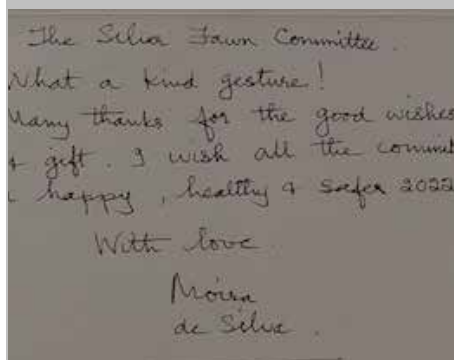 The Silva Fawn Committee.
What a kind gesture!
Many thanks for the good wishes
& gift. I wish all the commit
a happy, healthy & safer 2022
With love
Moira
de Silva.